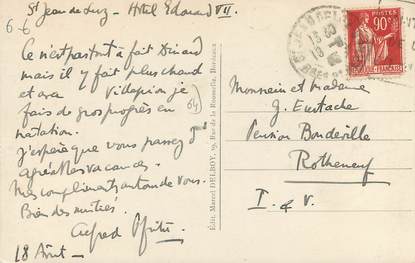 St Jean de Luz - Hôtel Edouard VII.
6-6
Ce n'est pas tout à fait Dinard
mais il y fait plus chaud
et avec je
fais de gros progrès en
natation.
J'espère que vous passez
agréables vacances.
Mes compliments autour de vous.
Bien des amitiés.
Alfred
18 Août
64
Edit. Marcel DELBOY, Rue de la Rousselle, Bordeaux
POSTES
90c
Monsieur et Madame
G. Eustache
Pension Bonderville
Rotheneuf
I. & V.